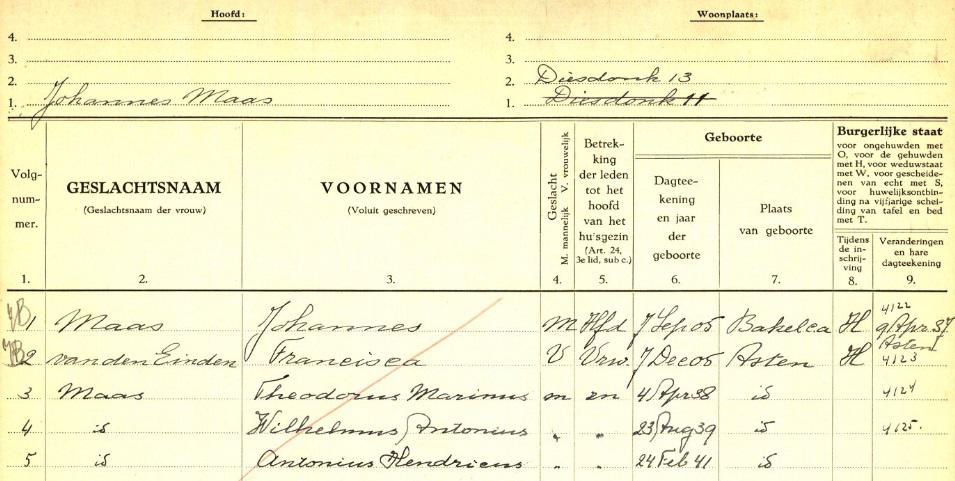 Hoofd: Woonplaats:
4. 4.
3. 3.
2. 2. Diesdonk 13
1. Johannes Maas 1. Diesdonk 11
Volg-
num-
mer.
GESLACHTSNAAM
(Geslachtsnaam der vrouw)
VOORNAMEN
(Voluit geschreven)
Geslacht
M. mannelijk V. vrouwelijk
Betrek-
king
der leden
tot het
hoofd
van het
huisgezin
(Art. 24,
3e lid, sub c.)
Geboorte
Dagtee-
kening
en jaar
der
geboorte
Plaats
van geboorte
Burgerlijke staat
voor ongehuwden met
O, voor de gehuwden
met H, voor weduwstaat
met W, voor gescheide-
nen van echt met S,
voor huwelijksontbin-
ding na vijfjarige schei-
ding van tafel en bed
met T.
Tijdens
de in-
schrij-
ving
Veranderingen
en hare
dagteekening
1. 2. 3. 4. 5. 6. 7. 8. 9.
4122
1 Maas Johannes M Hfd 7 Sep 05 H 9 Apr. 37
Asten
2 van den Einden Francisca V Vrw. 7 Dec 05 Asten H 4123
3 Maas Theodorus Marinus m zn 4 Apr 38 id 4124
4 id Wilhelmus Antonius " " 23 Aug 39 id 4125.
5 id Antonius Hendricus " " 24 Feb 41 id